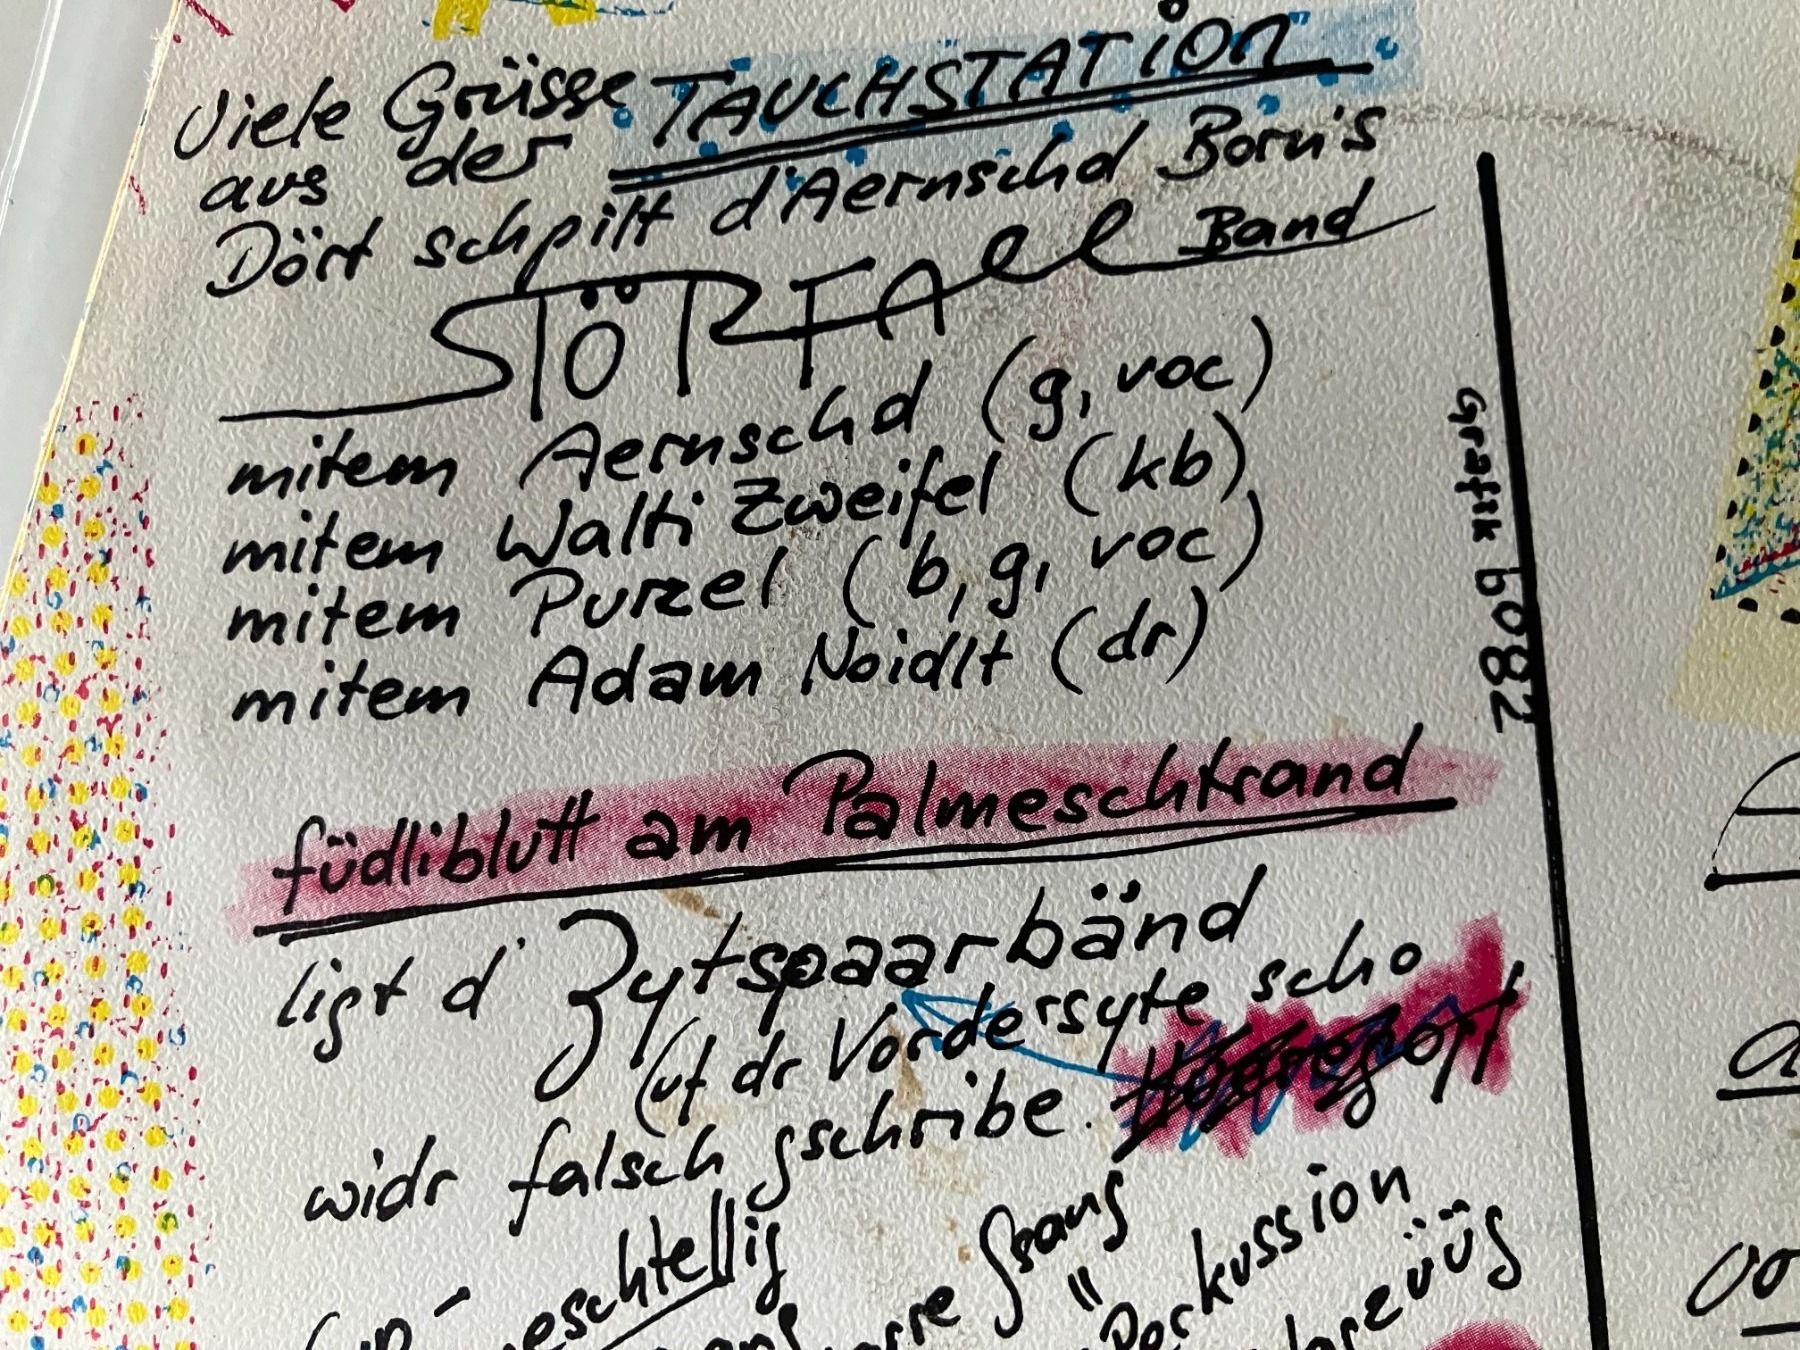 Viele Grüsse
aus der TAUCHSTATION
Dört schpilt d'Aernschd Born's
STÖRFAel Band
mitem Aernschd (g, voc)
mitem Walti Zweifel (kb)
mitem Purzel (b, g, voc)
mitem Adam Noidlt (dr)
Grafik bo82
füdliblutt am Palmeschtrand
ligt d' Zytspaarbänd
(uf dr Vordersyte scho
widr falsch gschribe.
eschtellig
gsang
Perkussion